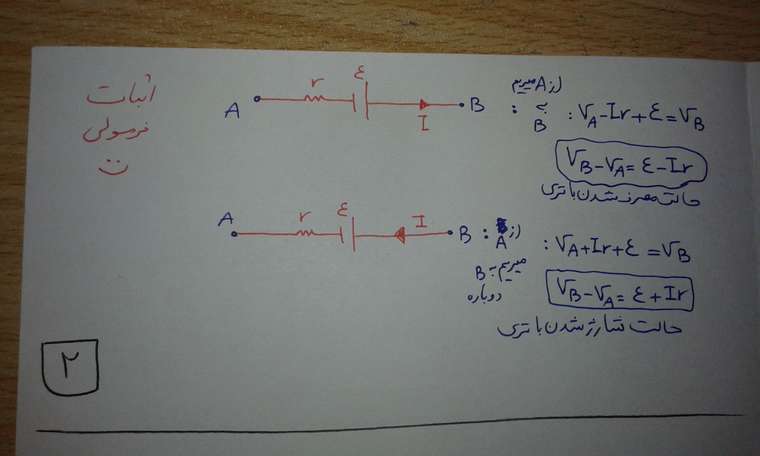 اثبات
فرمولی
A r ε I B
از A میریم
به
B : V_A - Ir + ε = V_B
V_B - V_A = ε - Ir
حالت مصرف شدن باتری
A r ε I B
از A : V_A + Ir + ε = V_B
میریم به B
دوباره
V_B - V_A = ε + Ir
حالت شارژ شدن باتری
۲